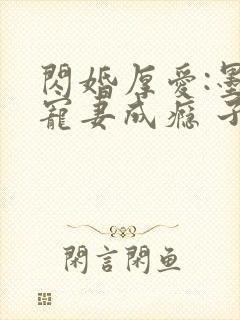 閃婚厚愛:墨
寵妻成癮 子
閑言閑魚